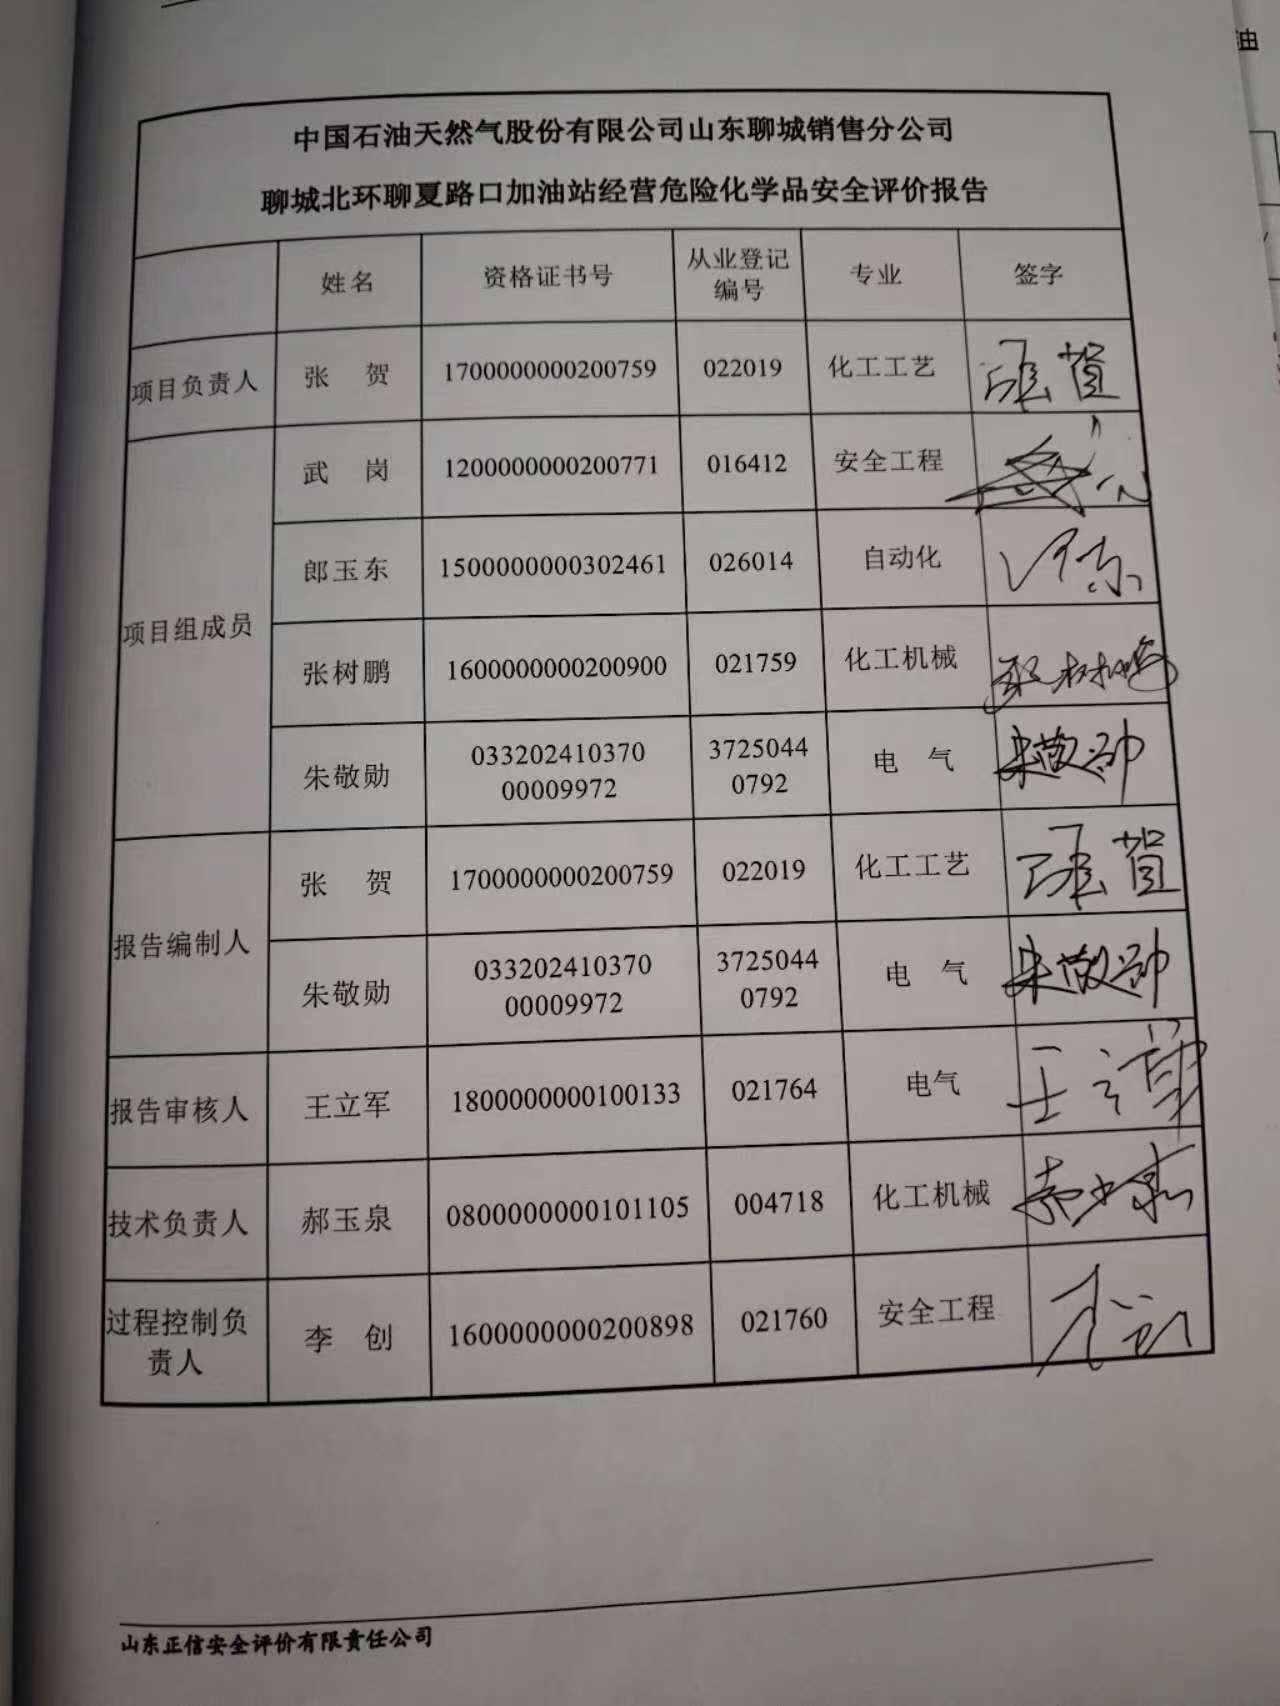 油
中国石油天然气股份有限公司山东聊城销售分公司
聊城北环聊夏路口加油站经营危险化学品安全评价报告
姓名 资格证书号 从业登记编号 专业 签字
项目负责人 张 贺 1700000000200759 022019 化工工艺 张贺
项目组成员 武 岗 1200000000200771 016412 安全工程
郎玉东 1500000000302461 026014 自动化
张树鹏 1600000000200900 021759 化工机械 张树鹏
朱敬勋 03320241037000009972 37250440792 电 气 朱敬勋
报告编制人 张 贺 1700000000200759 022019 化工工艺 张贺
朱敬勋 03320241037000009972 37250440792 电 气 朱敬勋
报告审核人 王立军 1800000000100133 021764 电气 王立军
技术负责人 郝玉泉 0800000000101105 004718 化工机械
过程控制负责人 李 创 1600000000200898 021760 安全工程 李创
山东正信安全评价有限责任公司